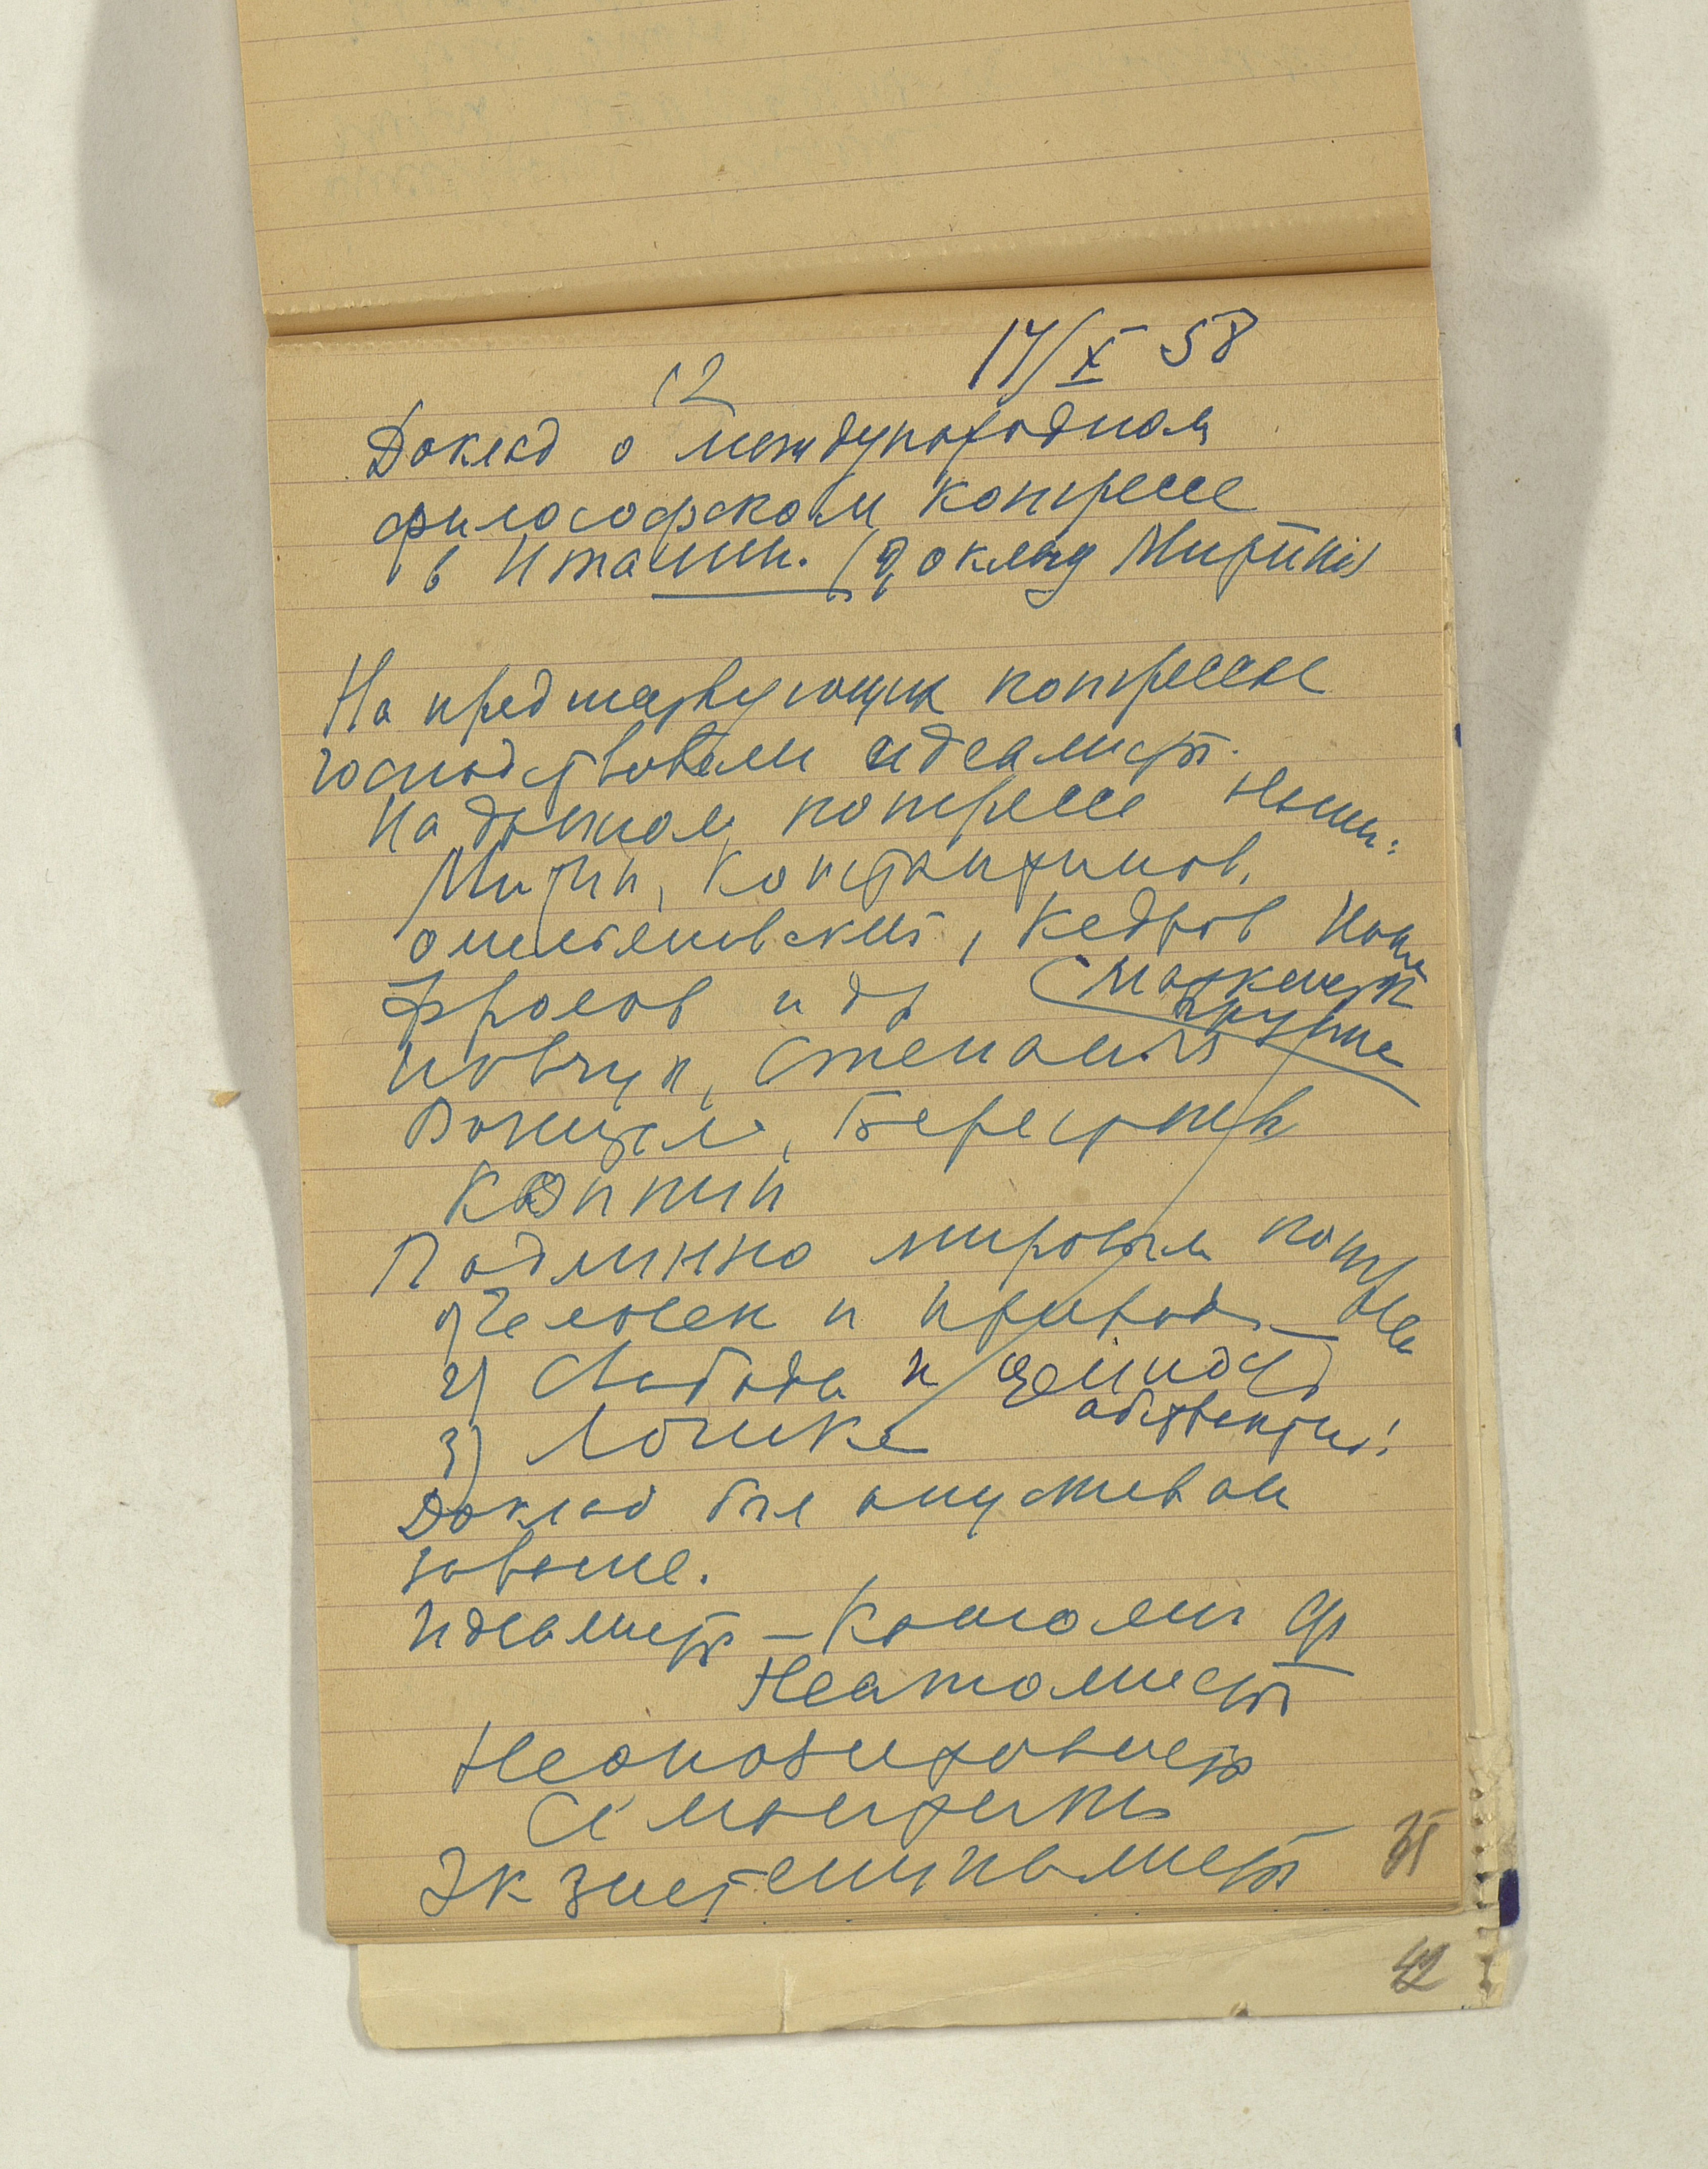 17/X 58
12
Доклад о международном
философском конгрессе
в Италии. (доклад Митина)
На предшествующих конгрессах
господствовали идеалисты.
На данном конгрессе наши:
Митин, Константинов,
Омельяновский, Кедров
Фролов и др
Иовчук, Степанян
Берестнев
Копнин
Подлинно мировым конгресс
1) Человек и природа
2) Свобода и ценность
3) Логика
Доклад был опубликован
заранее.
Идеалисты – Католич ф
Неотомисты
Неопозитивисты
Семантики
Экзистенциалисты
35
42